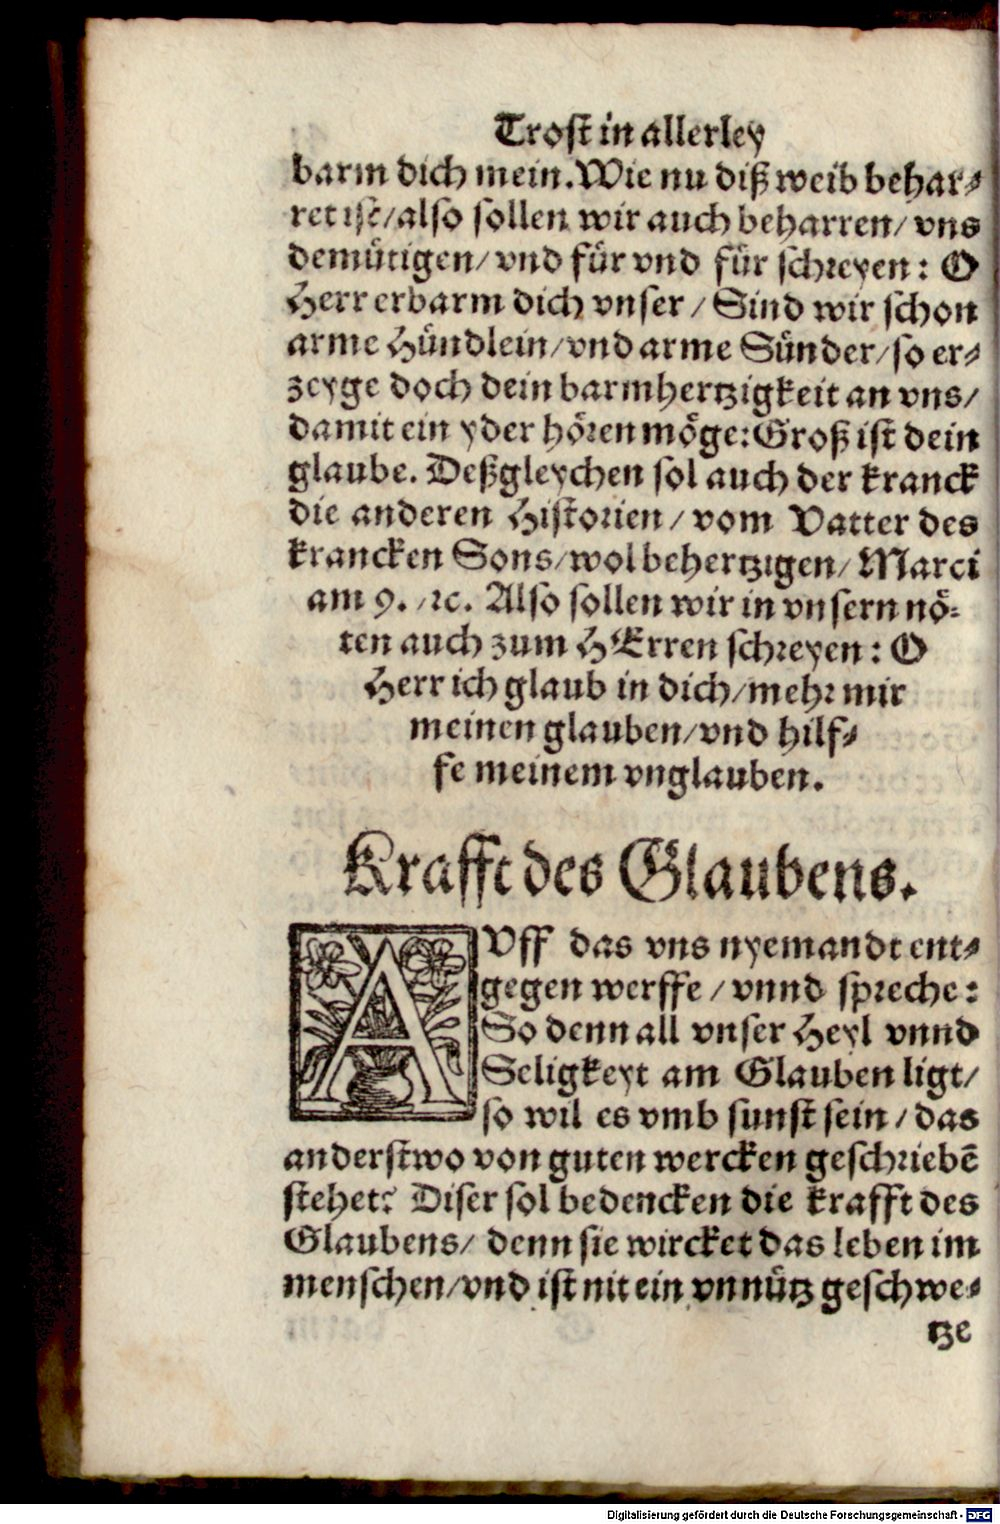 Trost in allerley
barm dich mein. Wie nu diß weib behar⸗
ret ist/ also sollen wir auch beharren/ vns
demütigen/ vnd für vnd für schreyen: O
Herr erbarm dich vnser / Sind wir schon
arme Hündlein/ vnd arme Sünder/ so er⸗
zeyge doch dein barmhertzigkeit an vns/
damit ein yder hören möge: Groß ist dein
glaube. Deßgleychen sol auch der kranck
die anderen Historien / vom Vatter des
krancken Sons/ wol behertzigen/ Marci
am 9. /ꝛc. Also sollen wir in vnsern nö⸗
ten auch zum HErren schreyen: O
Herr ich glaub in dich/ mehr mir
meinen glauben/ vnd hilf⸗
fe meinem vnglauben.
Krafft des Glaubens.
AVff das vns nyemandt ent⸗
gegen werffe / vnnd spreche:
So denn all vnser Heyl vnnd
Seligkeyt am Glauben ligt/
so wil es vmb sunst sein / das
anderstwo von guten wercken geschriebē
stehet? Diser sol bedencken die krafft des
Glaubens/ denn sie wircket das leben im
menschen/ vnd ist nit ein vnnütz geschwe⸗
tze
Digitalisierung gefördert durch die Deutsche Forschungsgemeinschaft - DFG